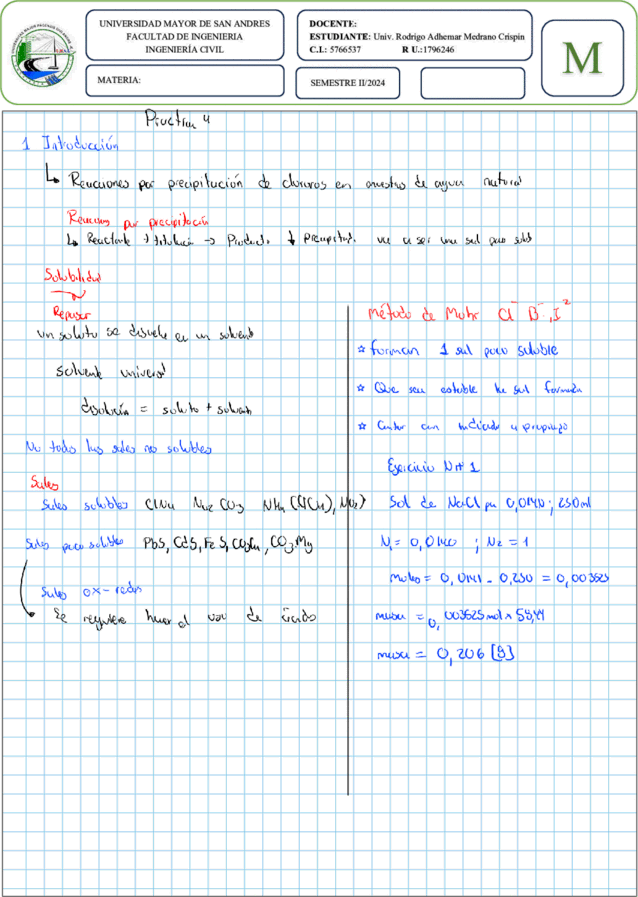 UNIVERSIDAD MAYOR DE SAN ANDRES
FACULTAD DE INGENIERIA
INGENIERÍA CIVIL
MATERIA:
DOCENTE:
ESTUDIANTE: Univ. Rodrigo Adhemar Medrano Crispin
C.I.: 5766537 R U.:1796246
SEMESTRE II/2024
M
Practica 4
1 Introducción
↳ Reacciones por precipitación de cloruros en muestras de agua natural
Reacciones por precipitación
↳ Reactante → titulación → Producto ↓ Precipitado. va a ser una sal poco soluble
Solubilidad
Repasar
un soluto se disuelve en un solvente
solvente universal
disolución = soluto + solvente
No todas las sales no solubles
Sales
Sales solubles ClNa Na2 CO3 NH4
Sales poco solubles PbS, CdS, FeS, CO3Ca, CO3Mg
Sales ox-redox
Se requiere hacer el uso de ácido
método de Mohr Cl⁻ B⁻, I²
☆ Forman 1 sal poco soluble
☆ Que sea estable la sal formada
☆ Contar con indicador apropiado
Ejercicio Nrt 1
Sol de NaCl 0,0140; 250ml
N1= 0,0140 ; N2 = 1
moles = 0,0141 - 0,250 = 0,003525
masa = 0,003525 mol × 58,44
masa = 0,206 [g]